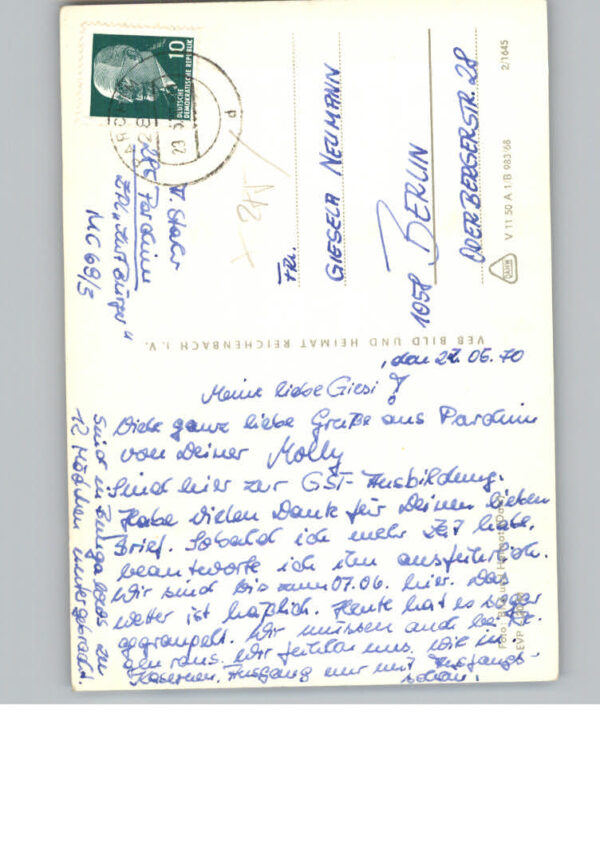 10
DEUTSCHE
DEMOKRATISCHE REPUBLIK
MC 68/3
Frl.
GIESELA NEUMANN
1058 BERLIN
ODERBERGERSTR. 28
V 11 50 A 1/B 983/68 2/1645
VEB BILD UND HEIMAT REICHENBACH I. V.
, den 27.05.70
Meine liebe Giesi!
Viele ganz liebe Grüße aus Parchim
von Deiner Molly
Sind hier zur GST-Ausbildung.
Habe vielen Dank für Deinen lieben
Brief. Sobald ich mehr Zeit habe,
beantworte ich ihn ausführlich.
Wir sind bis zum 07.06. hier. Das
Wetter ist häßlich. Heute hat es sogar
gegraupelt. Wir müssen auch bei Re-
gen raus. Wir fühlen uns wie in
Kasernen. Ausgang nur mit Ausgangs-
schein.
Sind in Bungalows zu
12 Mädchen untergebracht.